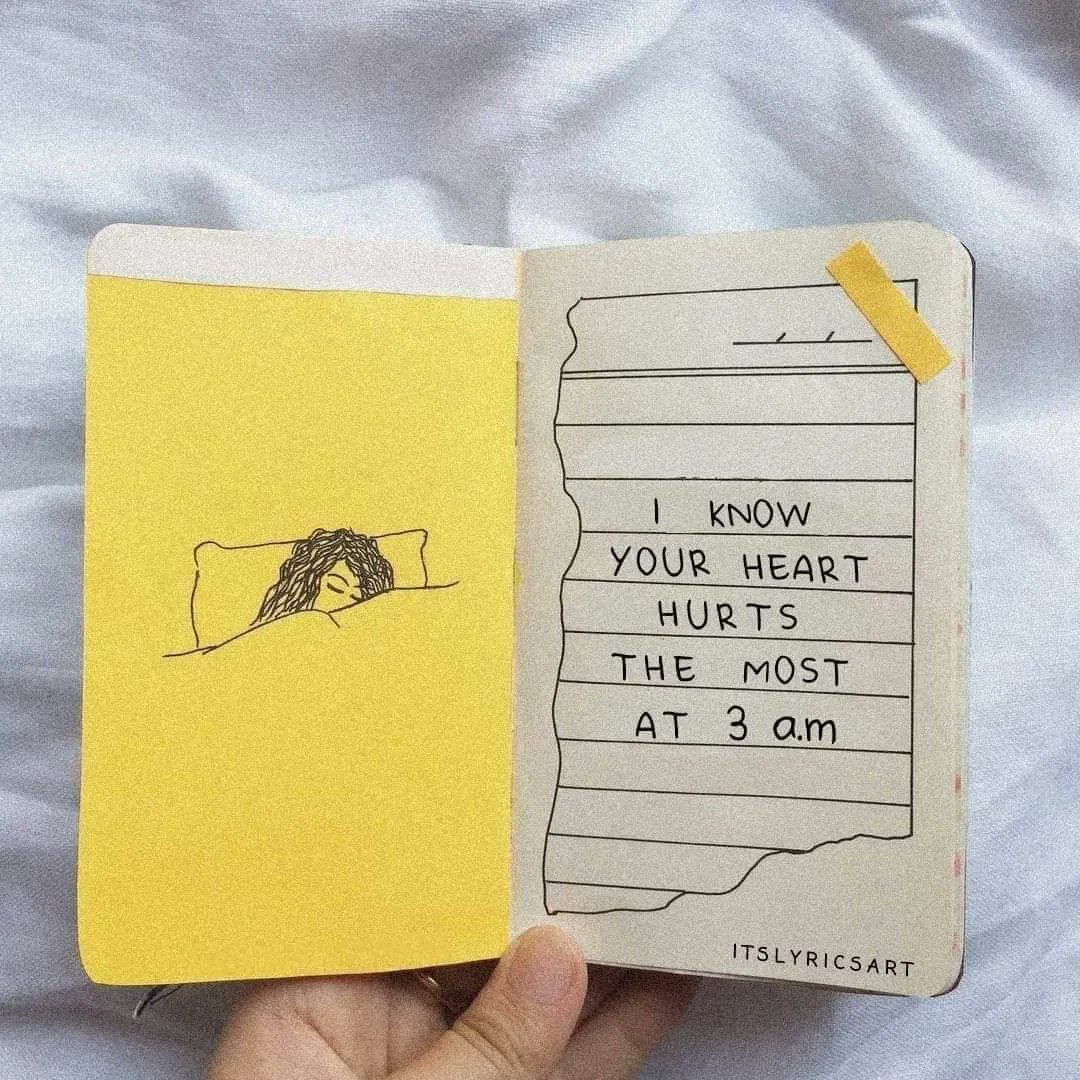 I KNOW
YOUR HEART
HURTS
THE MOST
AT 3 a.m
ITSLYRICSART